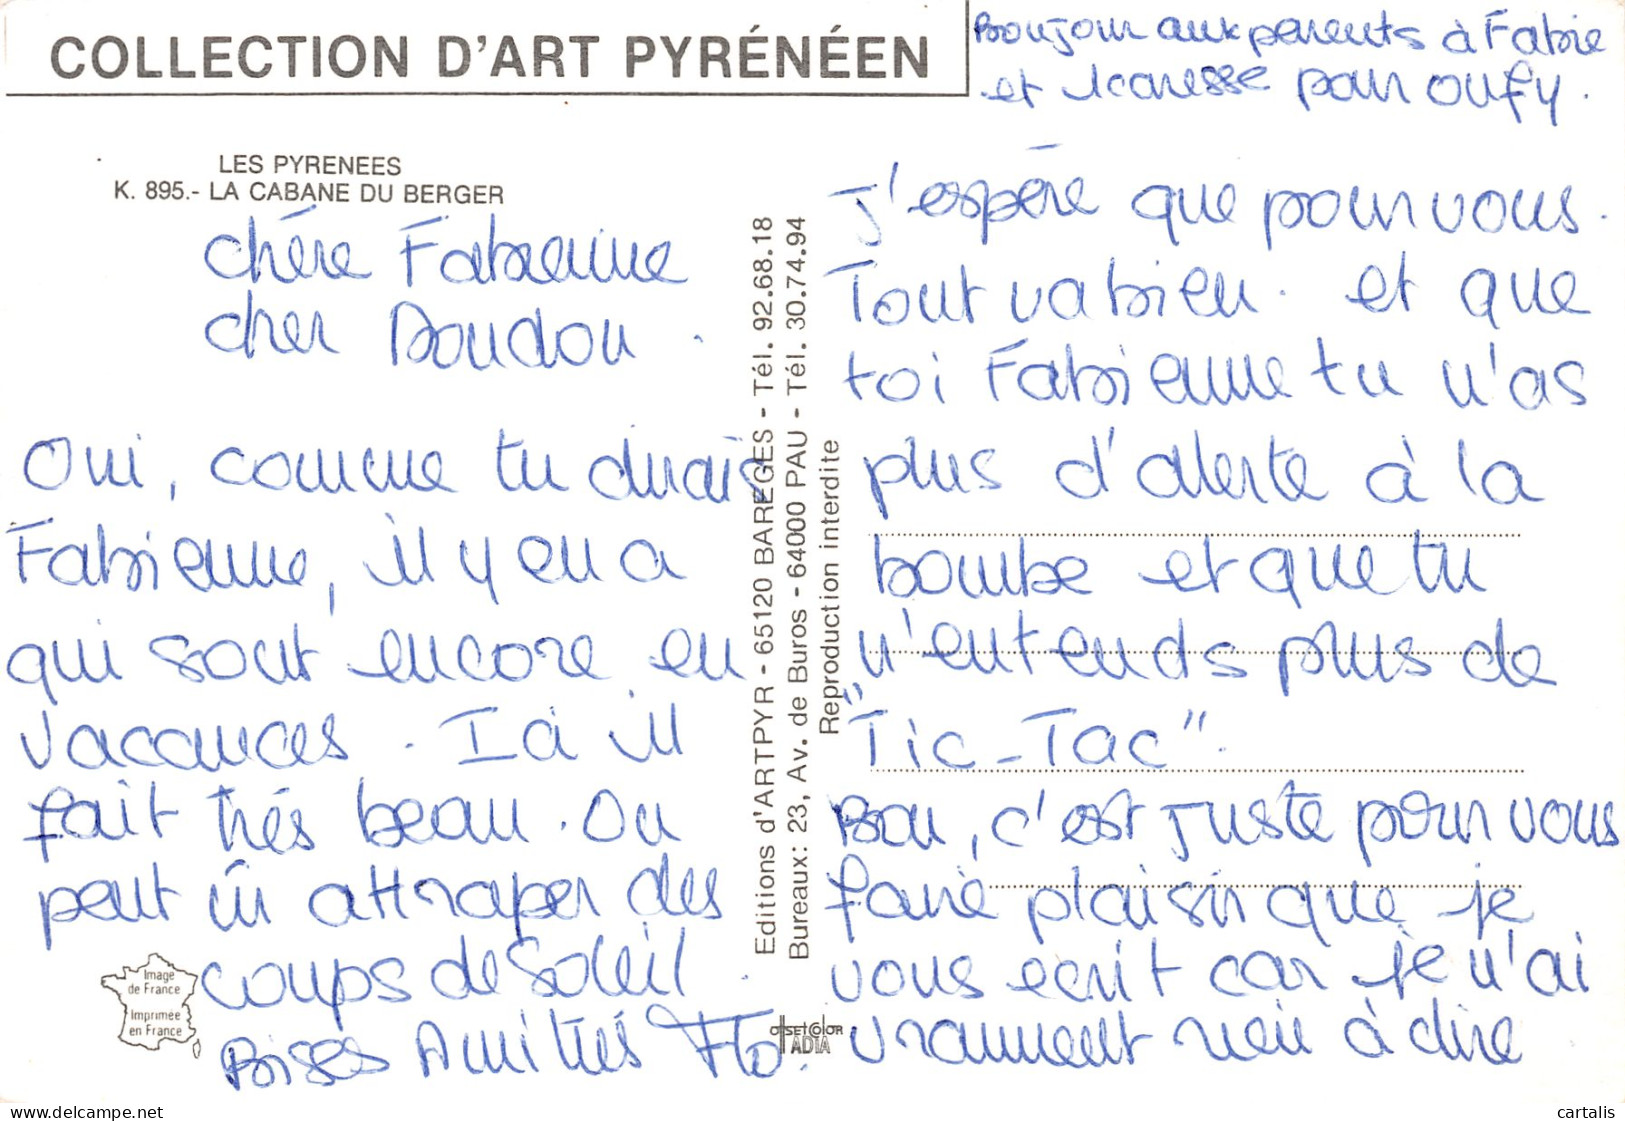 COLLECTION D'ART PYRÉNÉEN
Boujour aux parents à Fabie
et caresse pour oufy.
LES PYRENEES
K. 895.- LA CABANE DU BERGER
chère Fabienne
cher Doudou.
Oui, comme tu dirais
Fabienne, il y en a
qui sont encore en
vacances. Ici il
fait très beau. On
peut ici attraper des
coups de soleil.
Bises Amitiés Flo.
Image
de France
Imprimée
en France
Editions d'ARTPYR - 65120 BAREGES - Tél. 92.68.18
Bureaux: 23, Av. de Buros - 64000 PAU - Tél. 30.74.94
Reproduction interdite
OFFSETCOLOR
ADIA
J'espère que pour vous.
Tout va bien. et que
toi Fabienne tu n'as
plus d'alerte à la
bombe et que tu
n'entends plus de
"Tic-Tac".
Bon, c'est juste pour vous
faire plaisir que je
vous ecrit car je n'ai
vraiment rien à dire
delcampe.net
cartalis